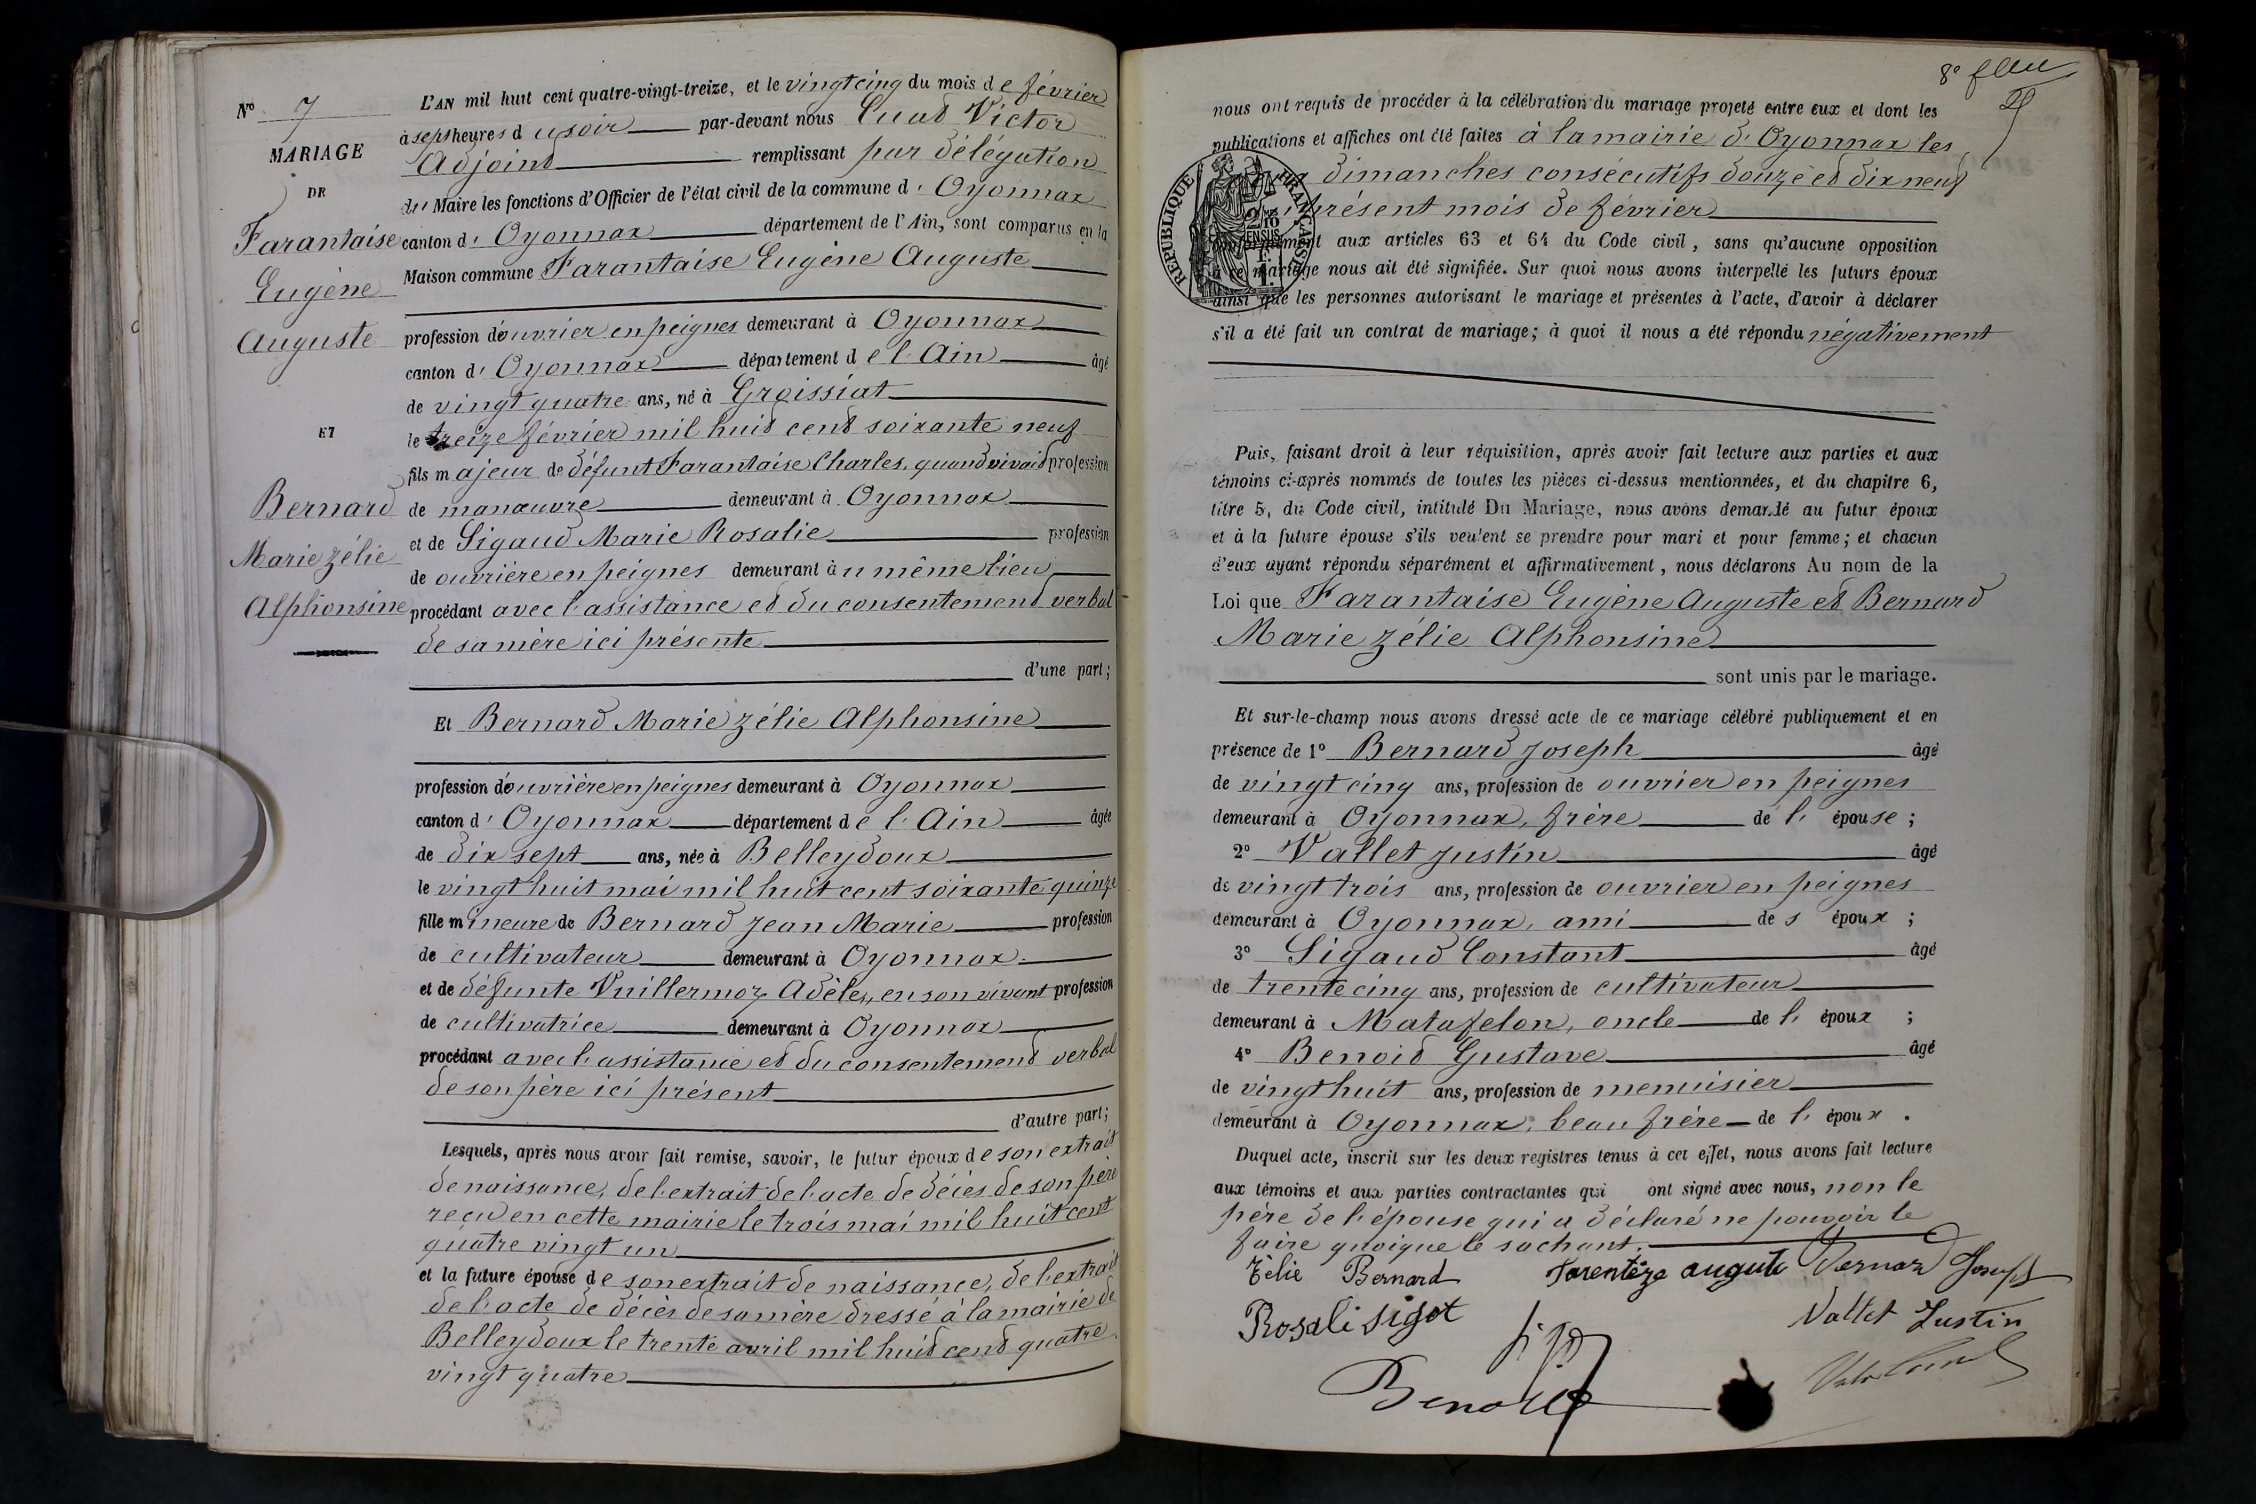 N° 7
MARIAGE
DE
Farantaise
Eugène
Auguste
ET
Bernard
Marie zélie
Alphonsine
L'AN mil huit cent quatre-vingt-treize, et le vingt cinq du mois de février
à sept heures du soir par-devant nous Cuad Victor
Adjoint remplissant par délégation
du Maire les fonctions d'Officier de l'état civil de la commune d'Oyonnax
canton d'Oyonnax département de l'Ain, sont comparus en la
Maison commune Farantaise Eugène Auguste
profession d'ouvrier en peignes demeurant à Oyonnax
canton d'Oyonnax département de l'Ain âgé
de vingt quatre ans, né à Groissiat
le treize février mil huit cent soixante neuf
fils majeur de défunt Farantaise Charles, quand vivait profession
de manœuvre demeurant à Oyonnax
et de Sigaud Marie Rosalie profession
de ouvrière en peignes demeurant au même lieu
procédant avec l'assistance et du consentement verbal
de sa mère ici présente
d'une part;
Et Bernard Marie zélie Alphonsine
profession d'ouvrière en peignes demeurant à Oyonnax
canton d'Oyonnax département de l'Ain âgée
de dix sept ans, née à Belleydoux
le vingt huit mai mil huit cent soixante quinze
fille mineure de Bernard Jean Marie profession
de cultivateur demeurant à Oyonnax
et de défunte Vuillermoz Adèle, en son vivant profession
de cultivatrice demeurant à Oyonnax
procédant avec l'assistance et du consentement verbal
de son père ici présent
d'autre part;
Lesquels, après nous avoir fait remise, savoir, le futur époux de son extrait
de naissance, de l'extrait de l'acte de décès de son père
reçu en cette mairie le trois mai mil huit cent
quatre vingt un
et la future épouse de son extrait de naissance, de l'extrait
de l'acte de décès de sa mère dressé à la mairie de
Belleydoux le trente avril mil huit cent quatre
vingt quatre
8e
nous ont requis de procéder à la célébration du mariage projeté entre eux et dont les
publications et affiches ont été faites à la mairie d'Oyonnax les
dimanches consécutifs douze et dix neuf
présent mois de février
RÉPUBLIQUE FRANÇAISE
2/10 EN SUS
conformément aux articles 63 et 64 du Code civil, sans qu'aucune opposition
à ce mariage nous ait été signifiée. Sur quoi nous avons interpellé les futurs époux
ainsi que les personnes autorisant le mariage et présentes à l'acte, d'avoir à déclarer
s'il a été fait un contrat de mariage; à quoi il nous a été répondu négativement
Puis, faisant droit à leur réquisition, après avoir fait lecture aux parties et aux
témoins ci-après nommés de toutes les pièces ci-dessus mentionnées, et du chapitre 6,
titre 5, du Code civil, intitulé Du Mariage, nous avons demandé au futur époux
et à la future épouse s'ils veulent se prendre pour mari et pour femme; et chacun
d'eux ayant répondu séparément et affirmativement, nous déclarons Au nom de la
Loi que Farantaise Eugène Auguste et Bernard
Marie zélie Alphonsine
sont unis par le mariage.
Et sur-le-champ nous avons dressé acte de ce mariage célébré publiquement et en
présence de 1° Bernard Joseph âgé
de vingt cinq ans, profession de ouvrier en peignes
demeurant à Oyonnax, frère de l'épouse;
2° Vallet Justin âgé
de vingt trois ans, profession de ouvrier en peignes
demeurant à Oyonnax, ami des époux;
3° Sigaud Constant âgé
de trente cinq ans, profession de cultivateur
demeurant à Matafelon, oncle de l'époux;
4° Benoid Gustave âgé
de vingt huit ans, profession de menuisier
demeurant à Oyonnax, beau frère de l'époux.
Duquel acte, inscrit sur les deux registres tenus à cet effet, nous avons fait lecture
aux témoins et aux parties contractantes qui ont signé avec nous, non le
père de l'épouse qui a déclaré ne pouvoir le
faire quoique le sachant.
Zélie Bernard Farentèze auguste Bernard Joseph
Rosali sigot Vallet Justin
Benoid